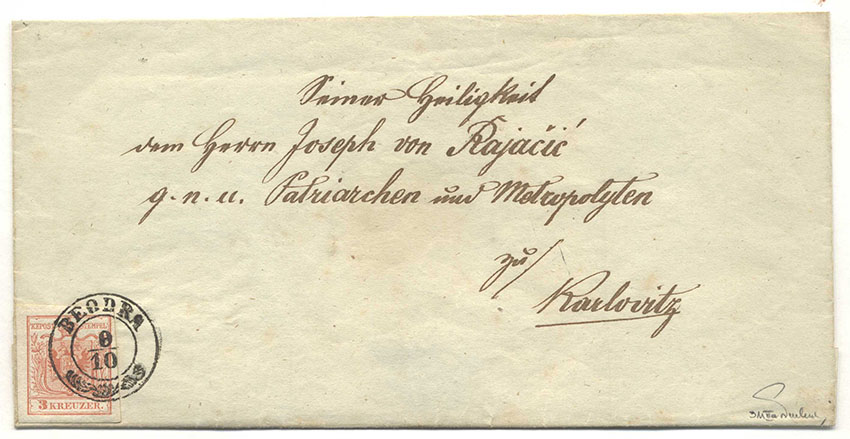 Seiner Heiligkeit
dem Herrn Joseph von Rajačić
g. n. u. Patriarchen und Metropolyten
zu/
Karlovitz
BEODRA
9
10
KKPOST STEMPEL
3 KREUZER.